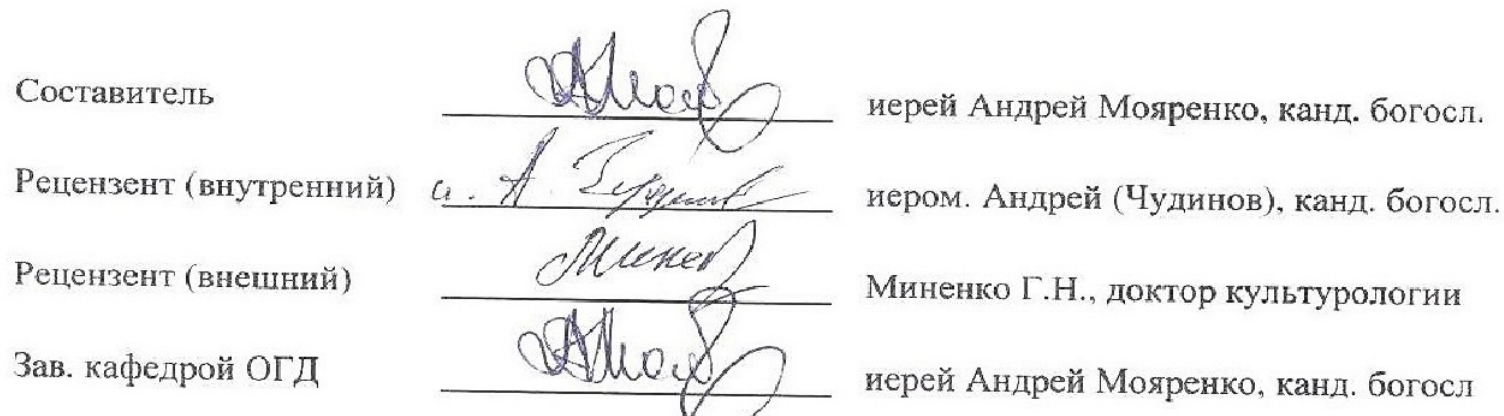 Составитель иерей Андрей Мояренко, канд. богосл.
Рецензент (внутренний) и. А. Чудинов иером. Андрей (Чудинов), канд. богосл.
Рецензент (внешний) Минен Миненко Г.Н., доктор культурологии
Зав. кафедрой ОГД иерей Андрей Мояренко, канд. богосл